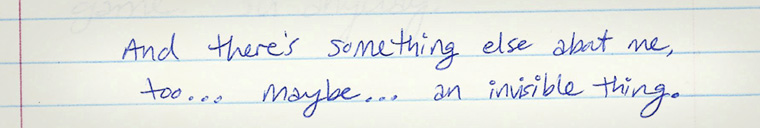 And there's something else about me,
too... maybe... an invisible thing.